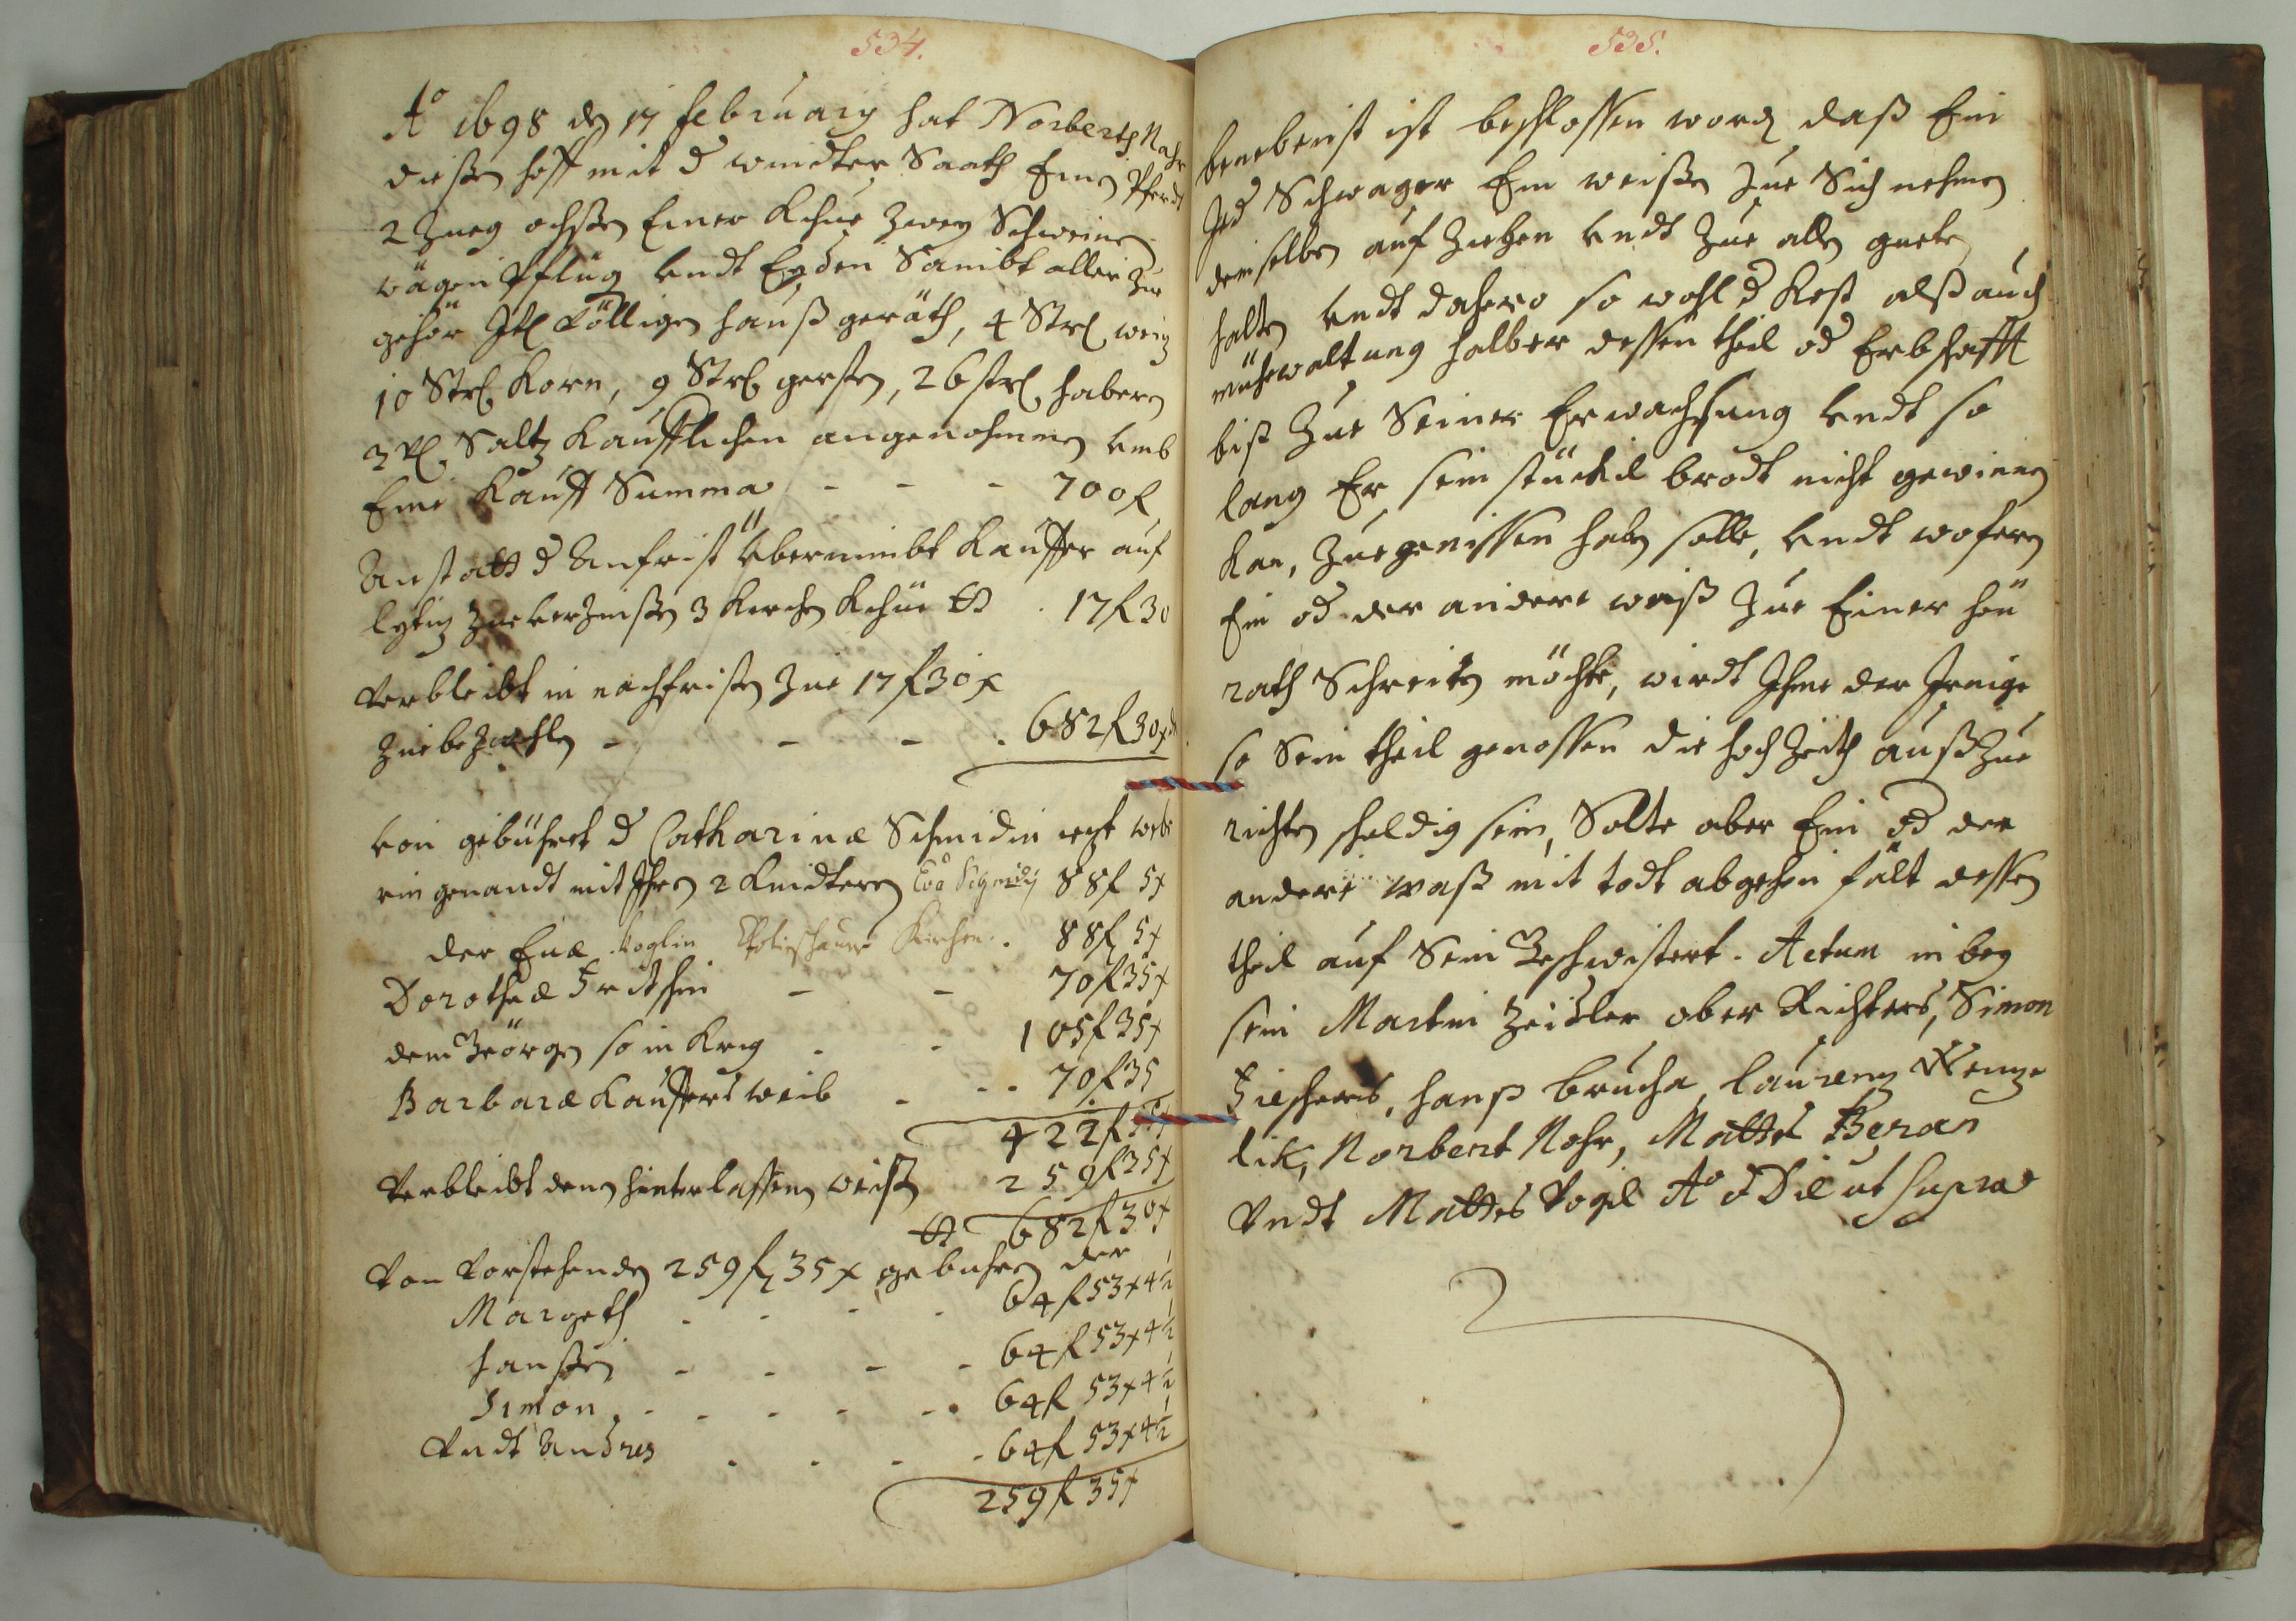 534.
Aº 1698 dẽ 17 february hat Norberth Mohr
dießen hoff mit d windter Saath Einen Pferdt
2 Zueg ochßen Einer Kuhe Zweÿ Schweine
wägen Pflüg undt Egden Sambt aller Zue
gehör Itl völligen hauß geräth, 4 Strl weitz
10 Strl Korn, 9 Strl gersten, 26 strl habern
Saltz Kaufflichen angenohmmen umb
Eine Kauff Summa - - - 700 f
Anstatt d Anfrist übernimbt Kauffer auf
Zueverzinßen 3 Kirchen Kühe tt . 17 f 30
Verbleibt in nachfristen Zue 17 f 30 x
Zuebezahlen - - - . 682 f 30 x
von gebührt d Catharinæ Schmidin
rin genandt mit Ihren 2 Kindtern 88 f 5 x
der Evæ Voglin Kirchen . 88 f 5 x
Dorotheæ Fritschin - - 70 f 35 x
dem Geörgen so in Krig . - 105 f 35 x
Barbaræ Kauffers weib - - - 70 f 35
422 f 55 x
Verbleibt denen hinterlaßenen weisen 259 f 35 x
tt 682 f 30 x
Von Vorstehenden 259 f 35 x gebuhren der
Margeth - - - - 64 f 53 x 4½
Hanßen - - - - 64 f 53 x 4½
Simon - - - - - 64 f 53 x 4½
Vndt Andres . . . - 64 f 53 x 4½
259 f 35 x
535.
benebenst ist beschlossen word, daß Ein
Jed Schwager Ein weißen Zue Sich nehmen
demselben auf Ziehen undt Zue allen gueten
halten undt dahero so wohl d Kost alß auch
mühewaltung halber dessen theil od Erbschafft
biß Zue Seiner Erwachsung undt so
lang Er sein stückel brodt nicht gewinnen
kan, Zuegenissen haben solle, undt wofern
Ein od der andere weiß Zue Einer heü
rath Schreiten möchte, wirdt Ihme der Jenige
so Sein theil genossen die hochZeith außZue
richten schuldig sein, Solte aber Ein od der
andere waiß mit todt abgehen fält dessen
theil auf Sein Geschwistert. Actum in beÿ
sein Martin Zeidler ober Richters, Simon
Fischers, Hanß brucha, Laurenz Wenze
lik, Norbert Mohr, Mattes Beran
Vndt Mattes Vogel Aº & Die ut Supra